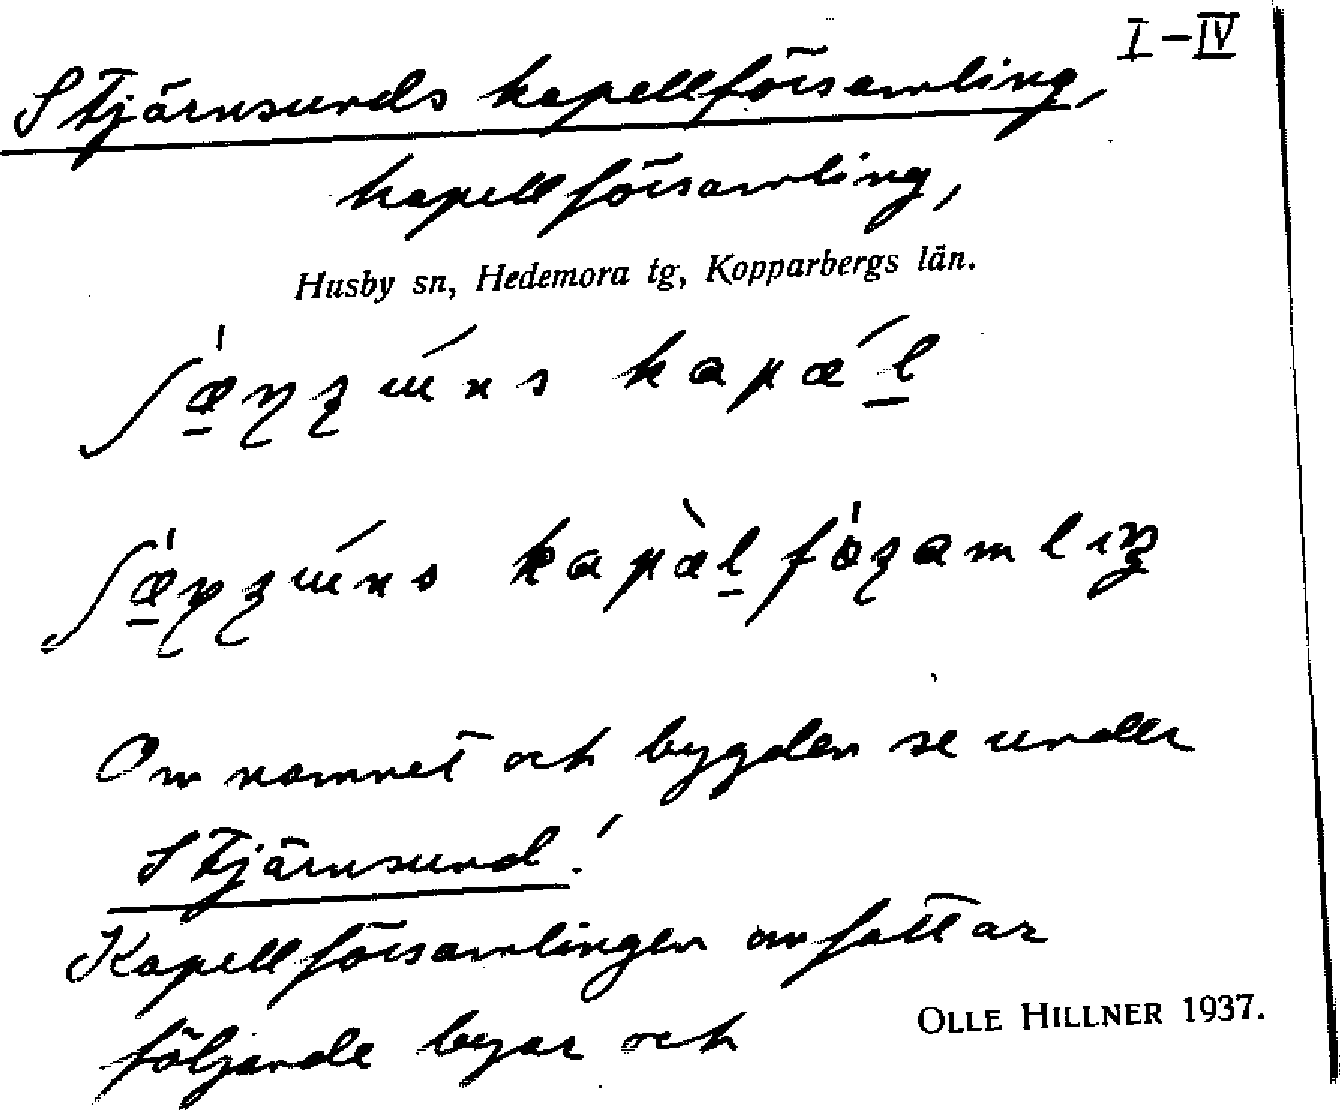 I-IV
Stjärnsunds kapellförsamling,
kapellförsamling,
Husby sn, Hedemora tg, Kopparbergs län.
Om namnet och bygden se under
Stjärnsund!
Kapellförsamlingen omfattar
följande byar och
OLLE HILLNER 1937.